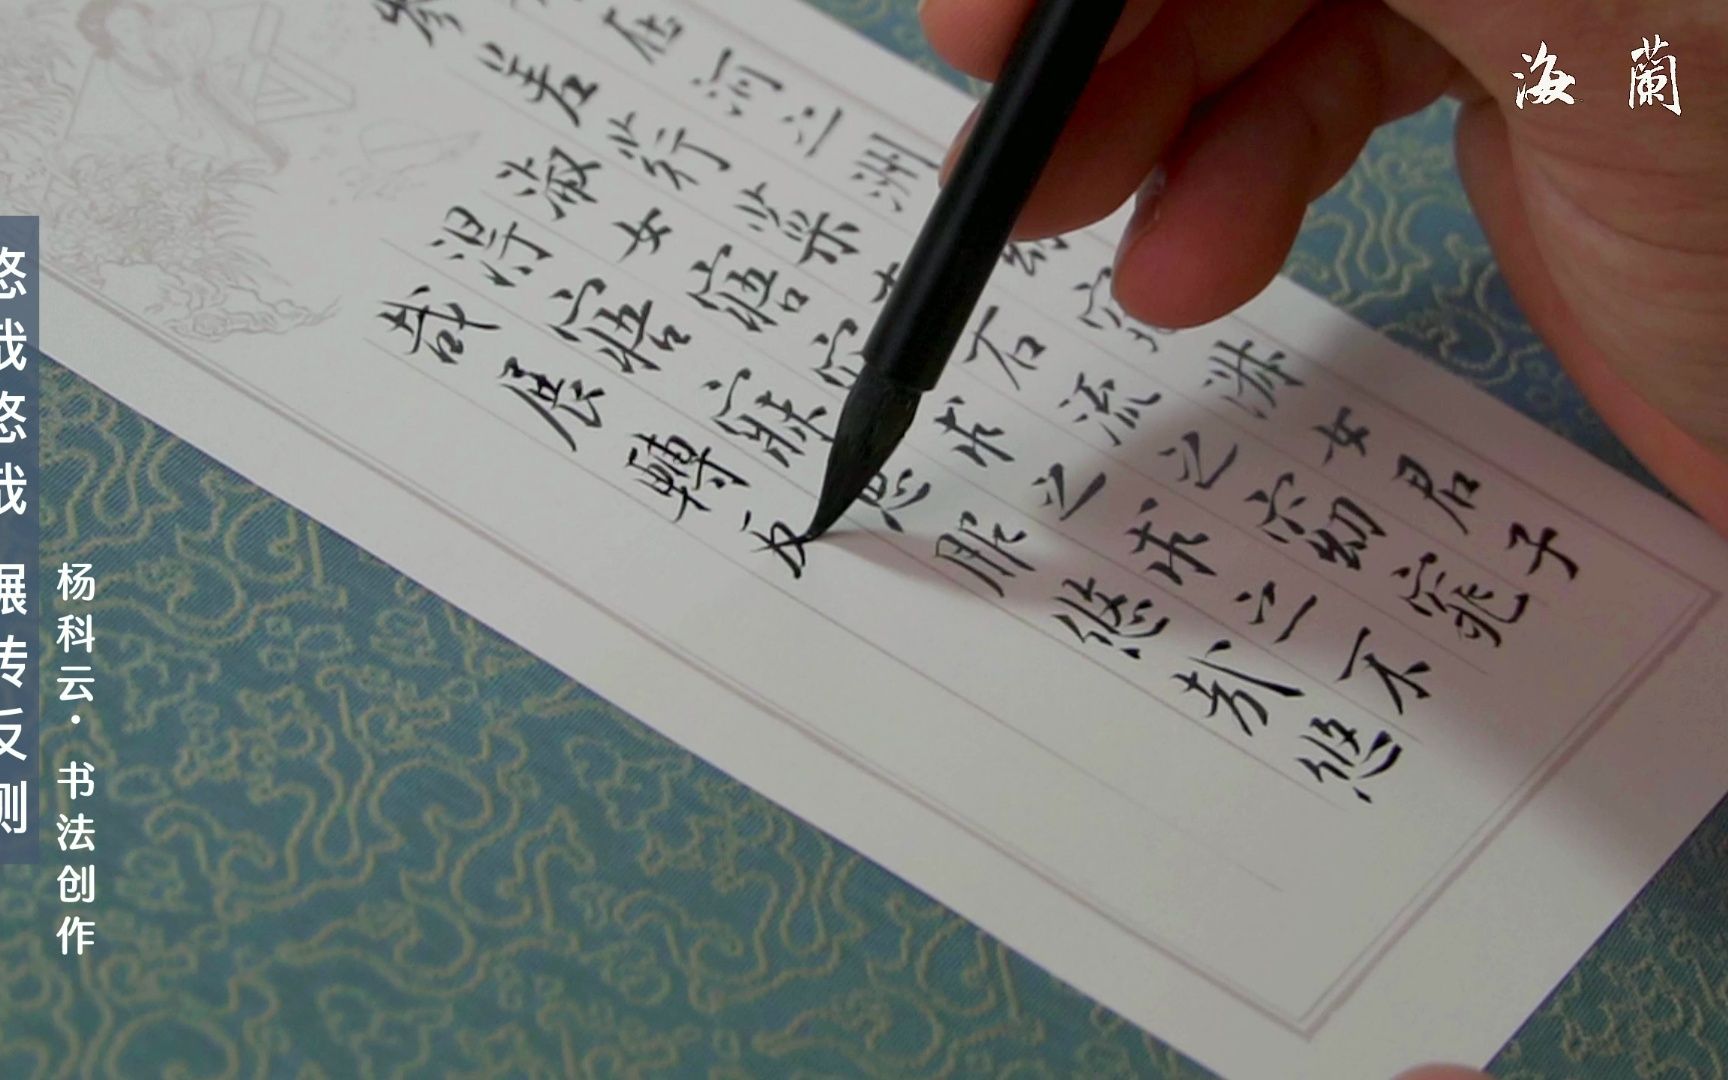 海蘭
在河之洲窈窕淑女君子
参差荇菜右流之窈窕
淑女寤寐求之求之不
得寤寐思服悠哉悠
哉展轉反
悠哉悠哉 辗转反侧
杨科云·书法创作